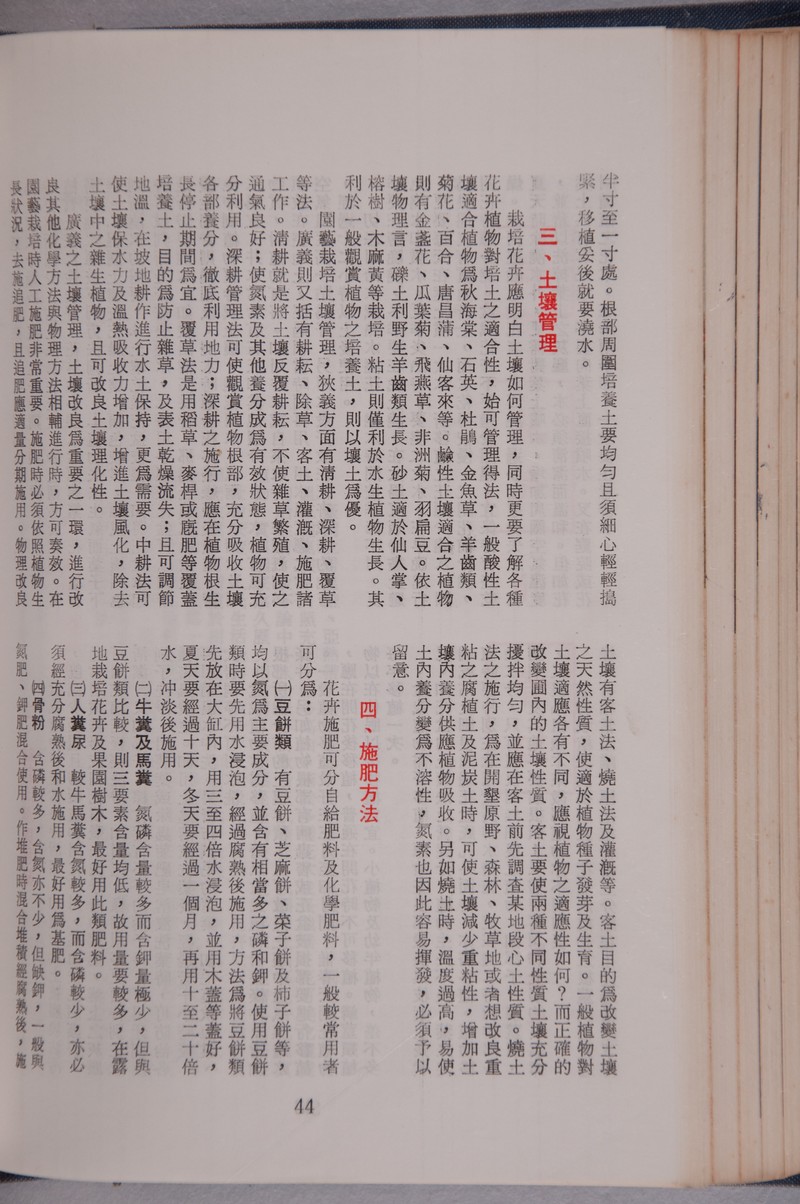 半寸至一寸處。根部周圍培養土要均勻且須細心輕輕搗
緊，移植妥後就要澆水。
三、土壤管理
栽培花卉應明白土壤如何管理，同時更要了解各種
花卉植物對培土之適合性，始可管理得法，一般酸性土
壤適合植物爲秋海棠、石英、杜鵑、金魚草、羊齒類、
菊花、百合、唐昌蒲、仙客來等。鹼性土壤適合之植物
則有金盞花、瓜葉菊、飛燕草、非洲菊、羽扁豆。依土
壤物理言，礫土利野生羊齒類生長。砂土適於仙人掌、
榕樹、木麻黃等栽培。粘土則僅利於水生植物生長。其
利於一般觀賞植物之培養土，則以壤土爲優。
園藝栽培土壤管理，狹義方面有淸耕、深耕、覆草
等法。廣義則又括有耕耘、除草、客土、灌漑、施肥諸
工作。淸耕就是將土壤反覆耕耘，不使雜草繁殖，使之
通氣良好；使氮素及其他養分成爲有效狀態，植物可充
分利用。深耕管理法可使觀賞植物根部，充分吸收土壤
各部養分，徹底利用地力；深耕之施行，應在植物根生
長停止期間爲宜。覆草法是用稻草、麥桿或廐肥等覆蓋
培養土，目的爲防止雜草，及表土乾燥流失；且可調節
地溫，在坡地耕作進行水土保持，更爲需要。中耕法可
使土壤保水力及溫熱吸收力增加，增進土壤風化，除去
土壤中之雜生植物，且可改良土壤理化性。
廣義之土壤管理，土壤改良爲重要之一環，進行改
良其他化學方法與物理方法相輔進行時，方可奏效。在
園藝栽培時人工施肥非常重要。施肥時必須依照植物生
長狀況，去施追肥，且追肥應適量分期施用。物理改良
土壤有客土法、燒土法及灌漑等。客土目的爲改變土壤
之天然性質，使適於植物種子發芽及生育。一般植物對
土壤適應各有不同，應視植物之適應性如何？而正確的
改變圃內的土壤性質。客土要使兩種不同性質土壤充分
擾拌均勻，並應在客土前先調查某地段心土性質。燒土
法之施行，爲在開墾原野、森林、牧草地或者想改良重
粘之腐植土及泥炭土時，可使土壤減少重粘性，增加土
壤內養分供應植物吸收。另如燒土時，溫度過高，易使
土內養分變爲不溶性，氮素也因此容易揮發，必須予以
留意。
四、施肥方法
花卉施肥可分自給肥料及化學肥料，一般較常用者
可分爲：
㈠豆餅類　有豆餅、芝麻餅、菜子餅及柿子餅等，
均以氮爲主要成分，並含有相當多之磷和鉀。使用豆餅
類時要先用水浸泡，經過腐熟後施用，方法爲將豆餅類
先放在大缸內，用三至四倍水浸泡，並用木蓋等蓋好，
夏天要經過十天，冬天要經過一個月，再用十至二十倍
水，冲淡後施用。
㈡牛糞及馬糞　氮磷含量較多而含鉀量極少，但與
豆餅類比較，則三要素含量均低，故用量要較多，在露
地栽培花卉及果園樹木，最好用此類肥料。
㈢人糞尿　較牛馬糞含氮較多，而含磷較少，亦必
須經充分腐熟後和水施用，最好用爲基肥。
㈣骨粉　含磷較多，含氮亦不少，但缺鉀，一般與
氮肥、鉀肥混合使用。作堆肥時混合堆積經腐熟後，施
44